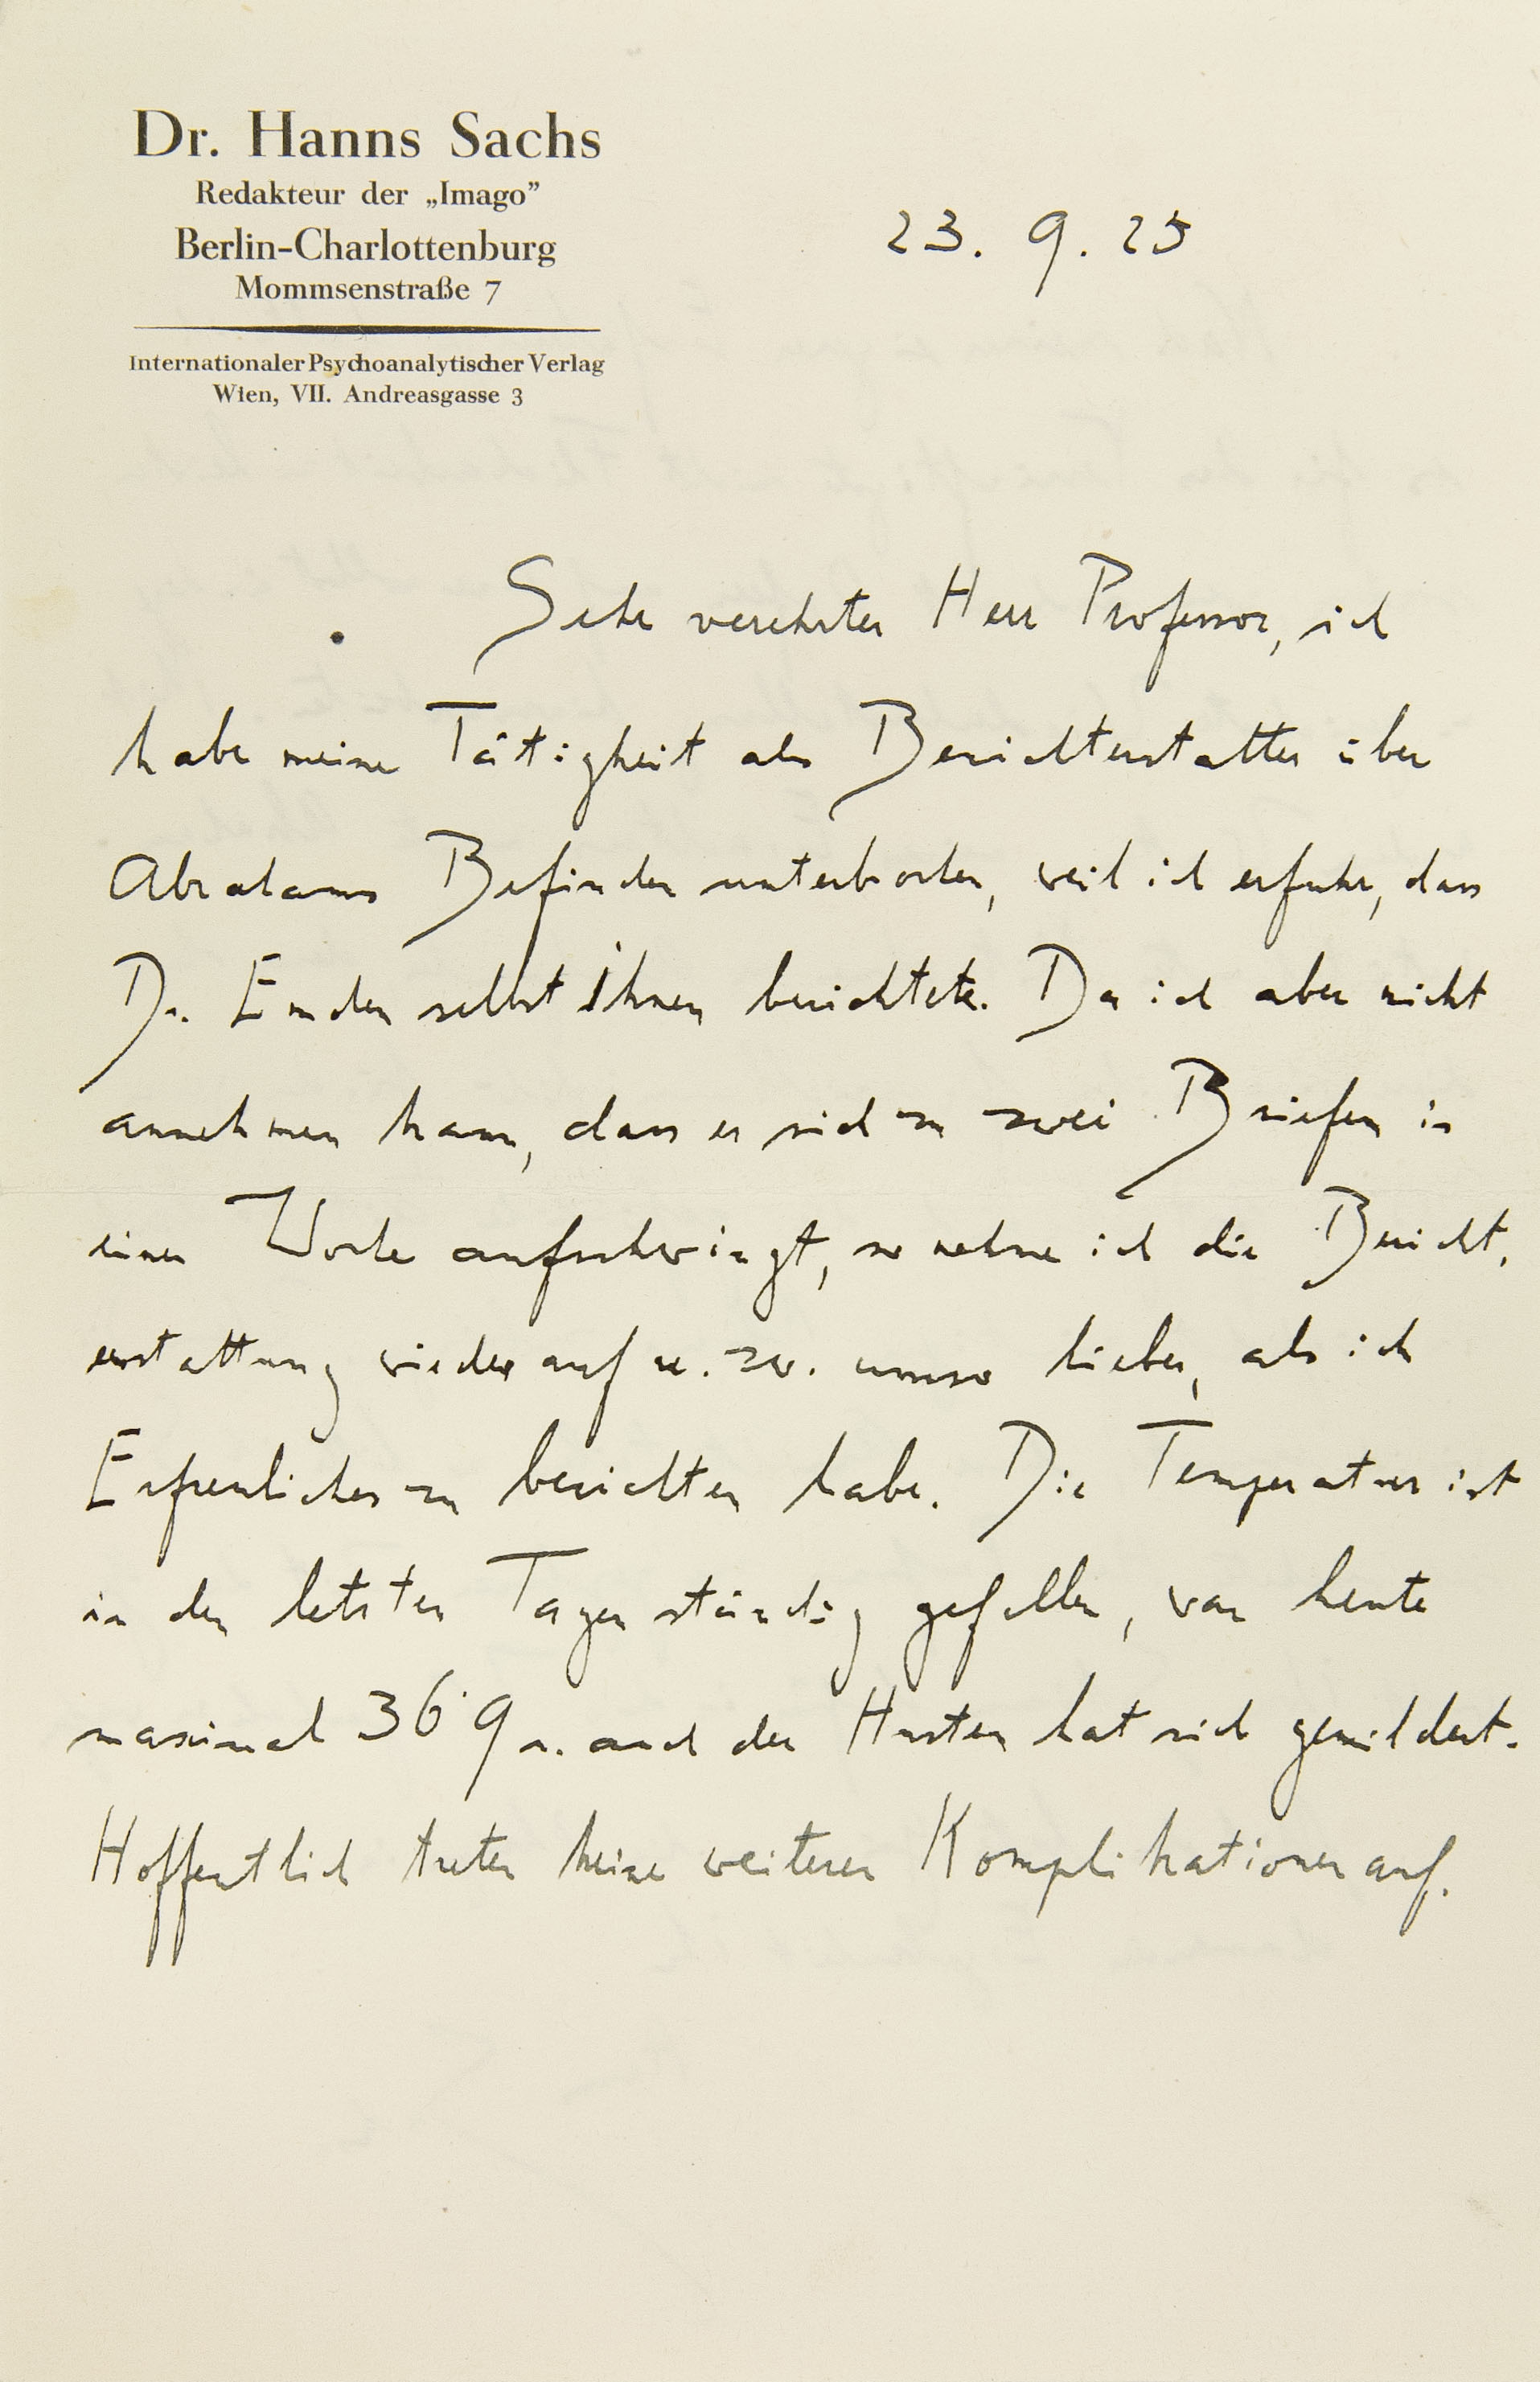 Dr. Hanns Sachs
Redakteur der „Imago”
Berlin-Charlottenburg
Mommsenstraße 7
Internationaler Psychoanalytischer Verlag
Wien, VII. Andreasgasse 3
23. 9. 25
Sehr verehrter Herr Professor, ich
habe meine Tätigkeit als Berichterstatter über
Abrahams Befinden unterbrochen, weil ich erfuhr, dass
Dr. Emden selbst Ihnen berichtete. Da ich aber nicht
annehmen kann, dass er sich zu zwei Briefen in
einer Woche aufschwingt, so nehme ich die Bericht,
erstattung wieder auf u. zw. umso lieber, als ich
Erfreuliches zu berichten habe. Die Temperatur ist
in den letzten Tagen ständig gefallen, war heute
maximal 36˙9 u. auch der Husten hat sich gemildert.
Hoffentlich treten keine weiteren Komplikationen auf.